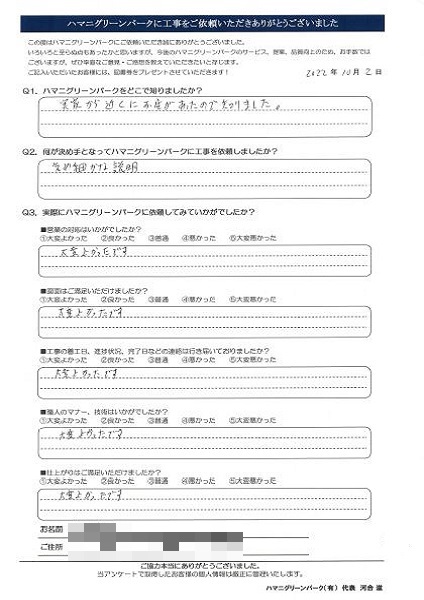 ハマニグリーンパークに工事をご依頼いただきありがとうございました
この度はハマニグリーンパークにご依頼いただき誠にありがとうございました。
いろいろと至らぬ点もあったかと思いますが、今後のハマニグリーンパークのサービス、提案、品質向上のため、お手数では
ございますが、ぜひ率直なご意見・ご感想を教えていただきたいと存じます。
ご記入いただいたお客様には、図書券をプレゼントさせていただきます!
2022年10月2日
Q1. ハマニグリーンパークをどこで知りましたか?
実家から近くにお店があったので知りました。
Q2. 何が決め手となってハマニグリーンパークに工事を依頼しましたか?
きめ細かな説明
Q3. 実際にハマニグリーンパークに依頼してみていかがでしたか?
■営業の対応はいかがでしたか?
①大変よかった ②良かった ③普通 ④悪かった ⑤大変悪かった
大変よかったです
■図面はご満足いただけましたか?
①大変よかった ②良かった ③普通 ④悪かった ⑤大変悪かった
大変よかったです
■工事の着工日、進捗状況、完了日などの連絡は行き届いておりましたか?
①大変よかった ②良かった ③普通 ④悪かった ⑤大変悪かった
大変よかったです
■職人のマナー、技術はいかがでしたか?
①大変よかった ②良かった ③普通 ④悪かった ⑤大変悪かった
大変よかったです
■仕上がりはご満足いただけましたか?
①大変よかった ②良かった ③普通 ④悪かった ⑤大変悪かった
大変よかったです
お名前
ご住所
ご協力本当にありがとうございました。
当アンケートで取得したお客様の個人情報は厳正に管理いたします。
ハマニグリーンパーク(有) 代表 河合